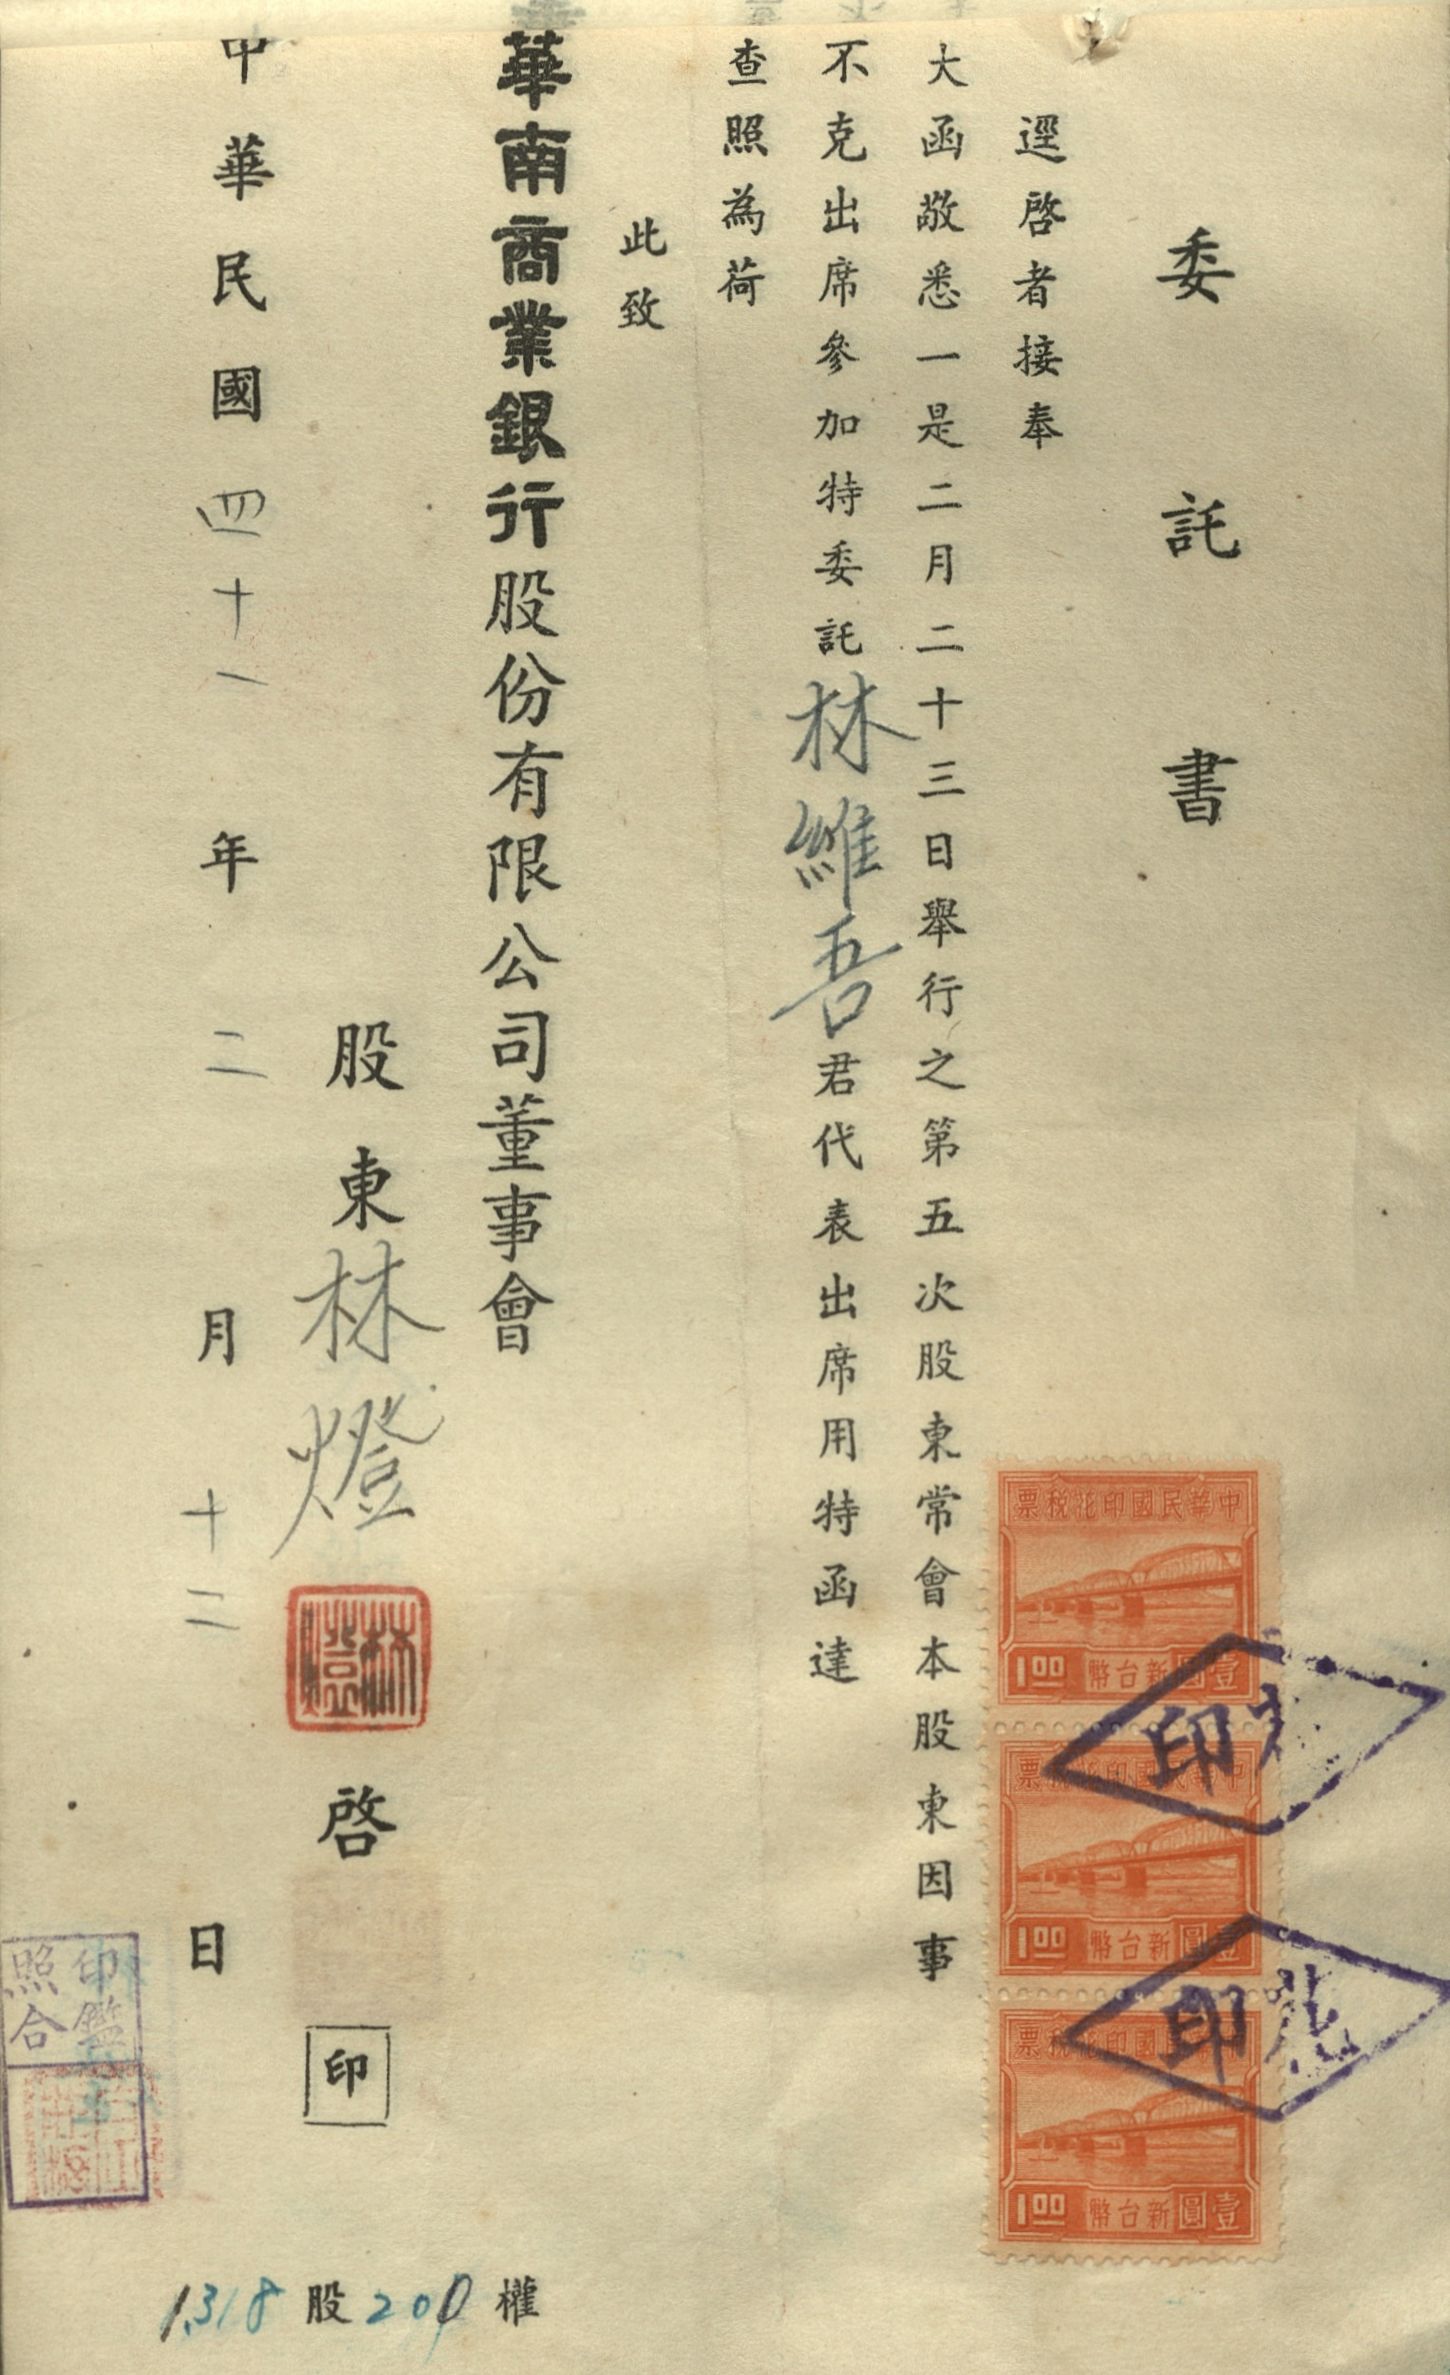 委託書
逕啓者接奉
大函敬悉一是二月二十三日舉行之第五次股東常會本股東因事
不克出席參加特委託林維吾君代表出席用特函達
查照為荷
此致
華南商業銀行股份有限公司董事會
股東林燈啓印
林燈
中華民國四十一年二月十二日
1,318股200權
印鑑
照合
票稅花印國民華中
1.00 幣台新圓壹
印
票稅花印國民華中
1.00 幣台新圓壹
印
票稅花印國民華中
1.00 幣台新圓壹